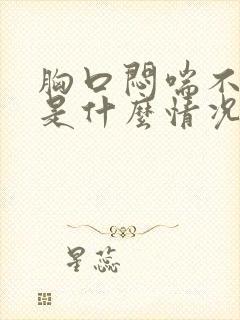 胸口悶喘不
是什麼情況
星蕊